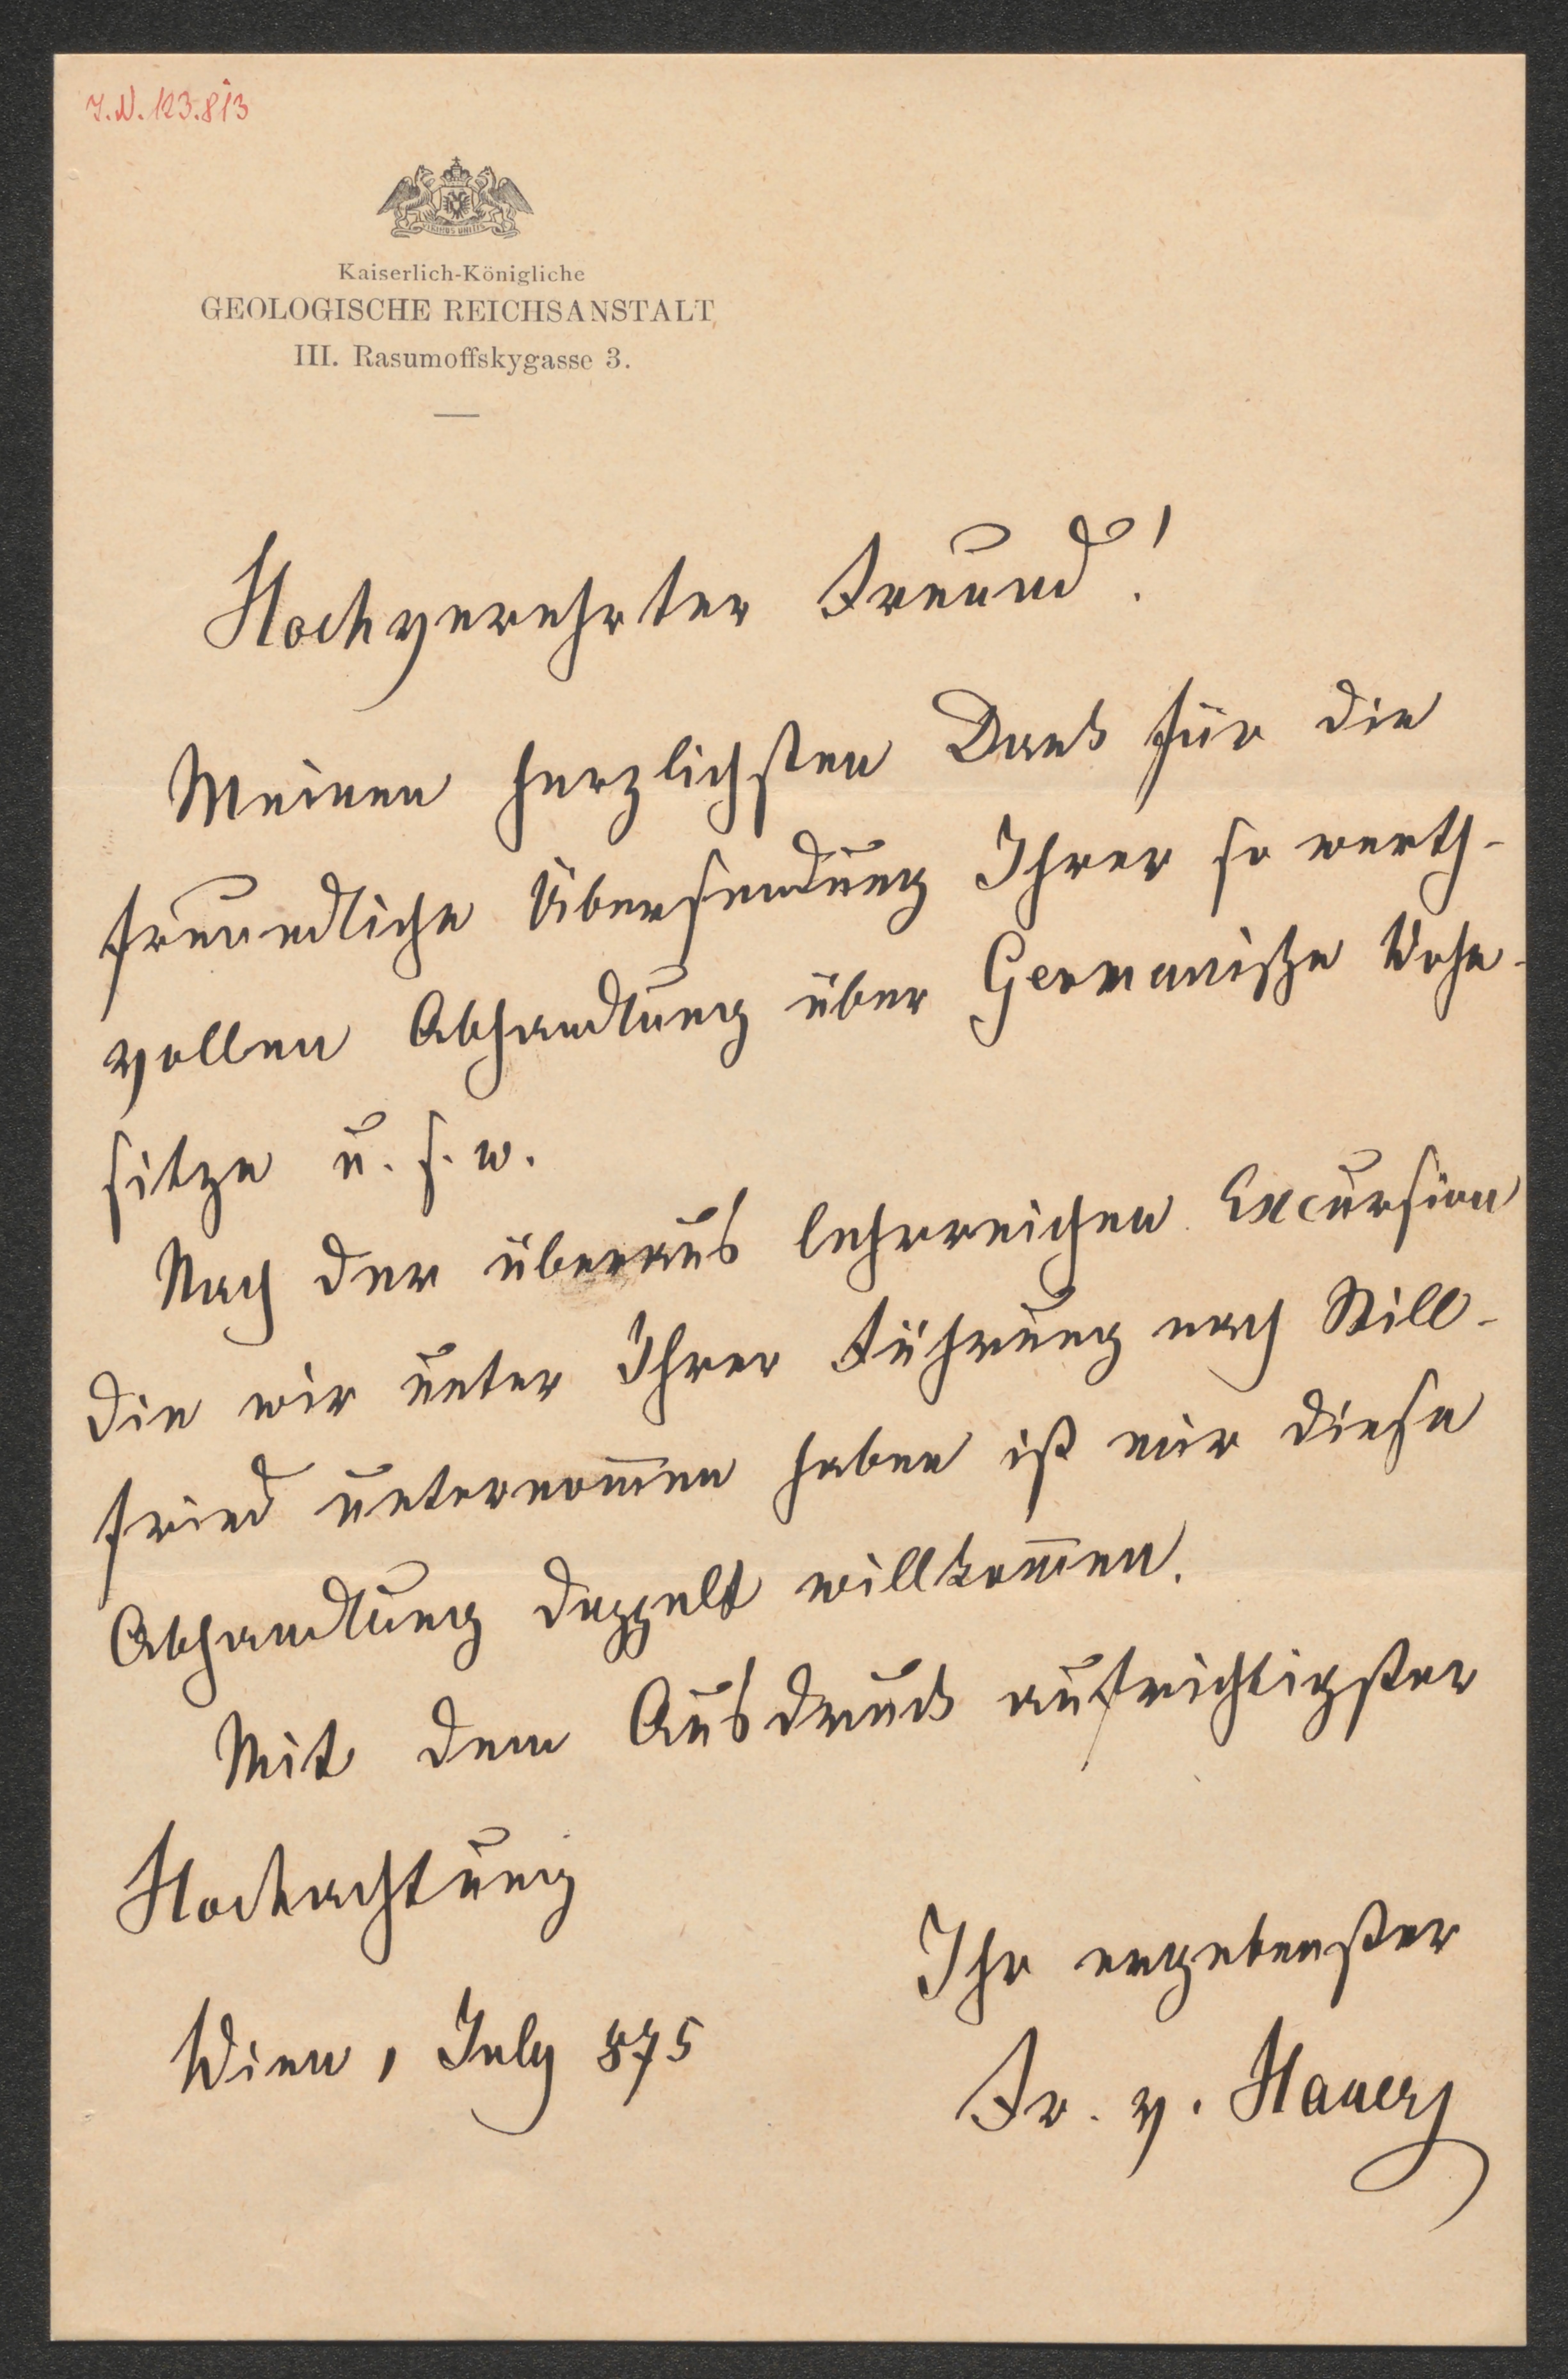 I.N. 123.813
VIRIBUS UNITIS
Kaiserlich-Königliche
GEOLOGISCHE REICHSANSTALT
III. Rasumoffskygasse 3.
Hochverehrter Freund!
Meinen herzlichsten Dank für die
freundliche Übersendung Ihrer so werth-
vollen Abhandlung über Germanische Wohn-
sitze u. s. w.
Nach der überaus lehrreichen Excursion
die wir unter Ihrer Führung nach Still-
fried unternom̅en haben ist mir diese
Abhandlung doppelt willkom̅en.
Mit dem Ausdruck aufrichtigster
Hochachtung
Ihr ergebenster
Wien, July 875
Fr. v. Hauer